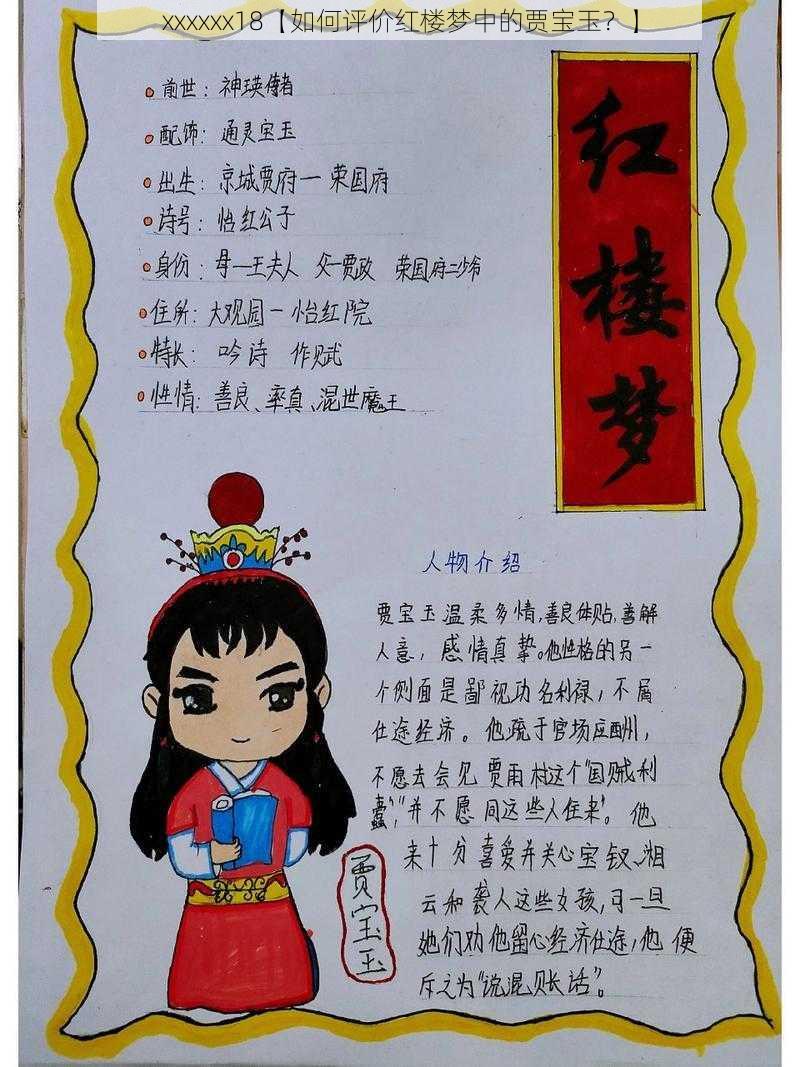 xxxxxx18【如何评价红楼梦中的贾宝玉？】
前世：神瑛侍者
配饰：通灵宝玉
出生：京城贾府一荣国府
诗号：怡红公子
身份：母一王夫人 父一贾政 荣国府二少爷
住所：大观园一怡红院
特长：吟诗 作赋
性情：善良、率真、混世魔王
红楼梦
人物介绍
贾宝玉温柔多情,善良体贴,善解
人意，感情真挚。他性格的另一
个侧面是鄙视功名利禄，不屑
仕途经济。他疏于官场应酬，
不愿去会见贾雨村这个“国贼利
蠹”，“并不愿同这些人往来”。他
来十分喜爱并关心宝钗、湘
云和袭人这些女孩,可一旦
她们劝他留心经济仕途,他便
斥之为“说混账话”。
贾宝玉